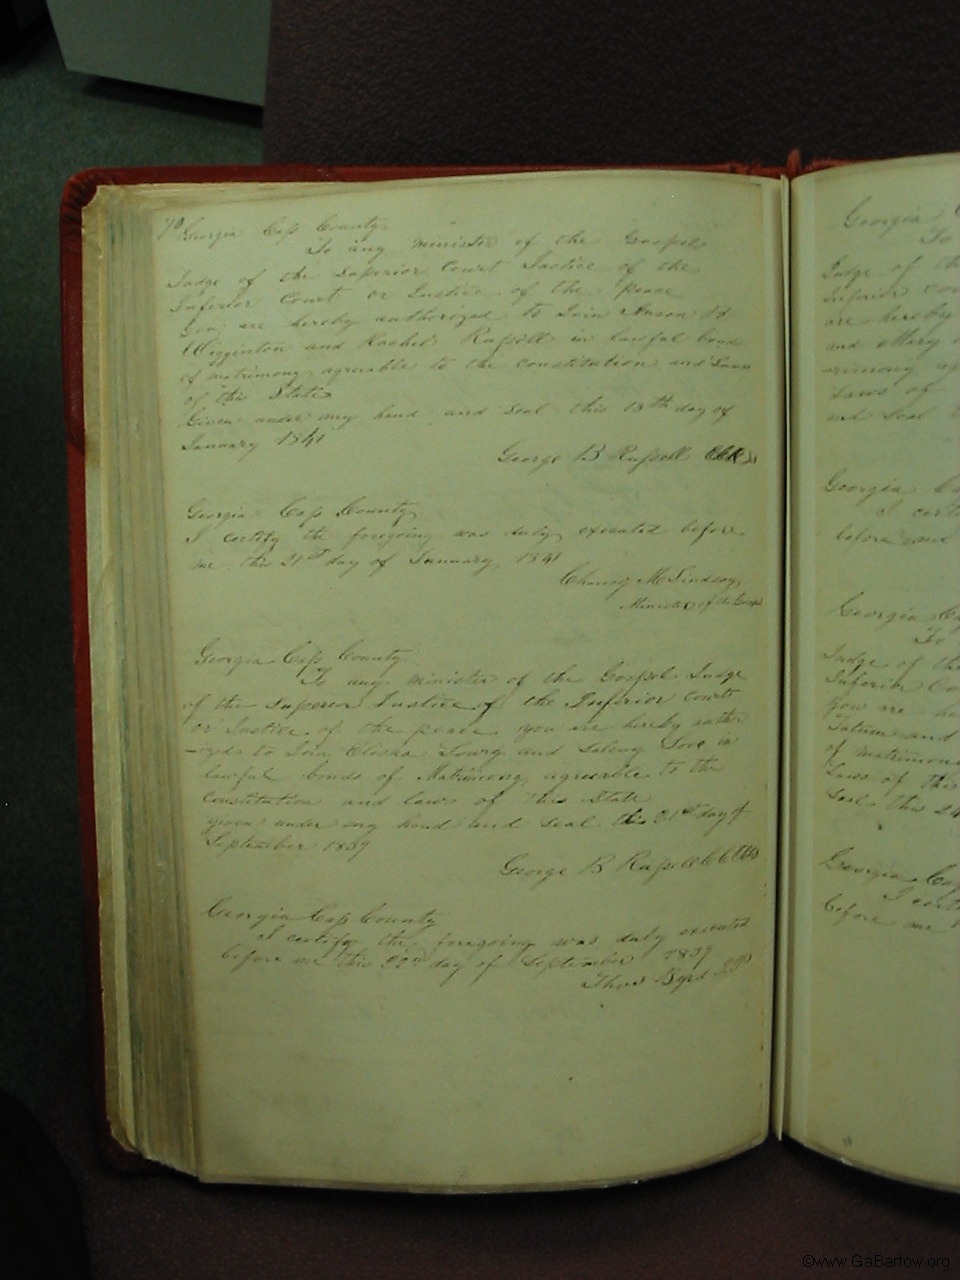 70 Georgia Cass County
To any minister of the Gospel
Judge of the Superior Court Justice of the
Inferior Court or Justice of the Peace
You are hereby authorized to Join Anson B
Wigginton and Rachel Russell in lawful bond
of matrimony agreeable to the constitution and Laws
of this State
Given under my hand and seal this 18th day of
January 1841
George B Russell
Georgia Cass County
I certify the foregoing was duly executed before
me this 21st day of January 1841
M Lindsay
Minister of the Gospel
Georgia Cass County
To any minister of the Gospel Judge
of the Superior Justice of the Inferior Court
or Justice of the peace you are hereby author
ized to Join Elisha Lowry and Love in
lawful bonds of Matrimony agreeable to the
Constitution and laws of this State
given under my hand and seal this day of
September 1839
George B Russell
Georgia Cass County
I certify the foregoing was duly executed
before me this 22nd day of September 1839
Thos Byrd J.P
Georgia
To
Judge of the
Inferior Cou
are hereby
and Mary
rimony ag
Laws of
and Seal
Georgia Ca
I certi
before me
Georgia Ca
To
Judge of the
Inferior Co
you are he
Tatum and
of matrimon
Laws of this
Seal this 24
Georgia Cas
I certi
before me
©www.GaBartow.org